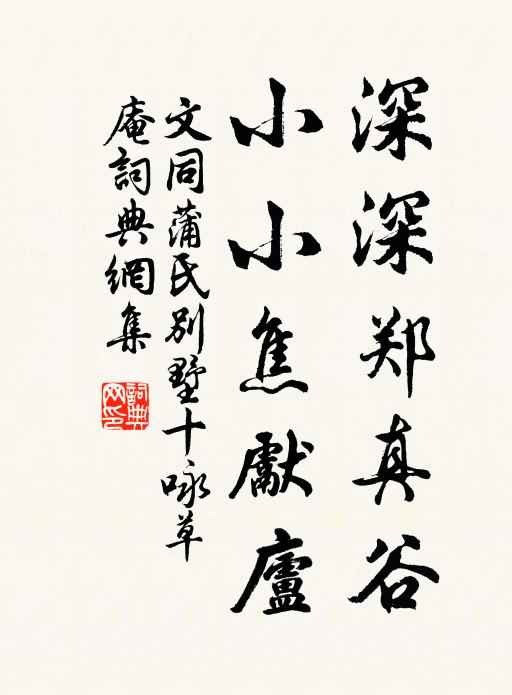 深深郑真谷
小小焦獻廬
文同蒲氏别墅十咏草
庵詞典網集
詞典
网印